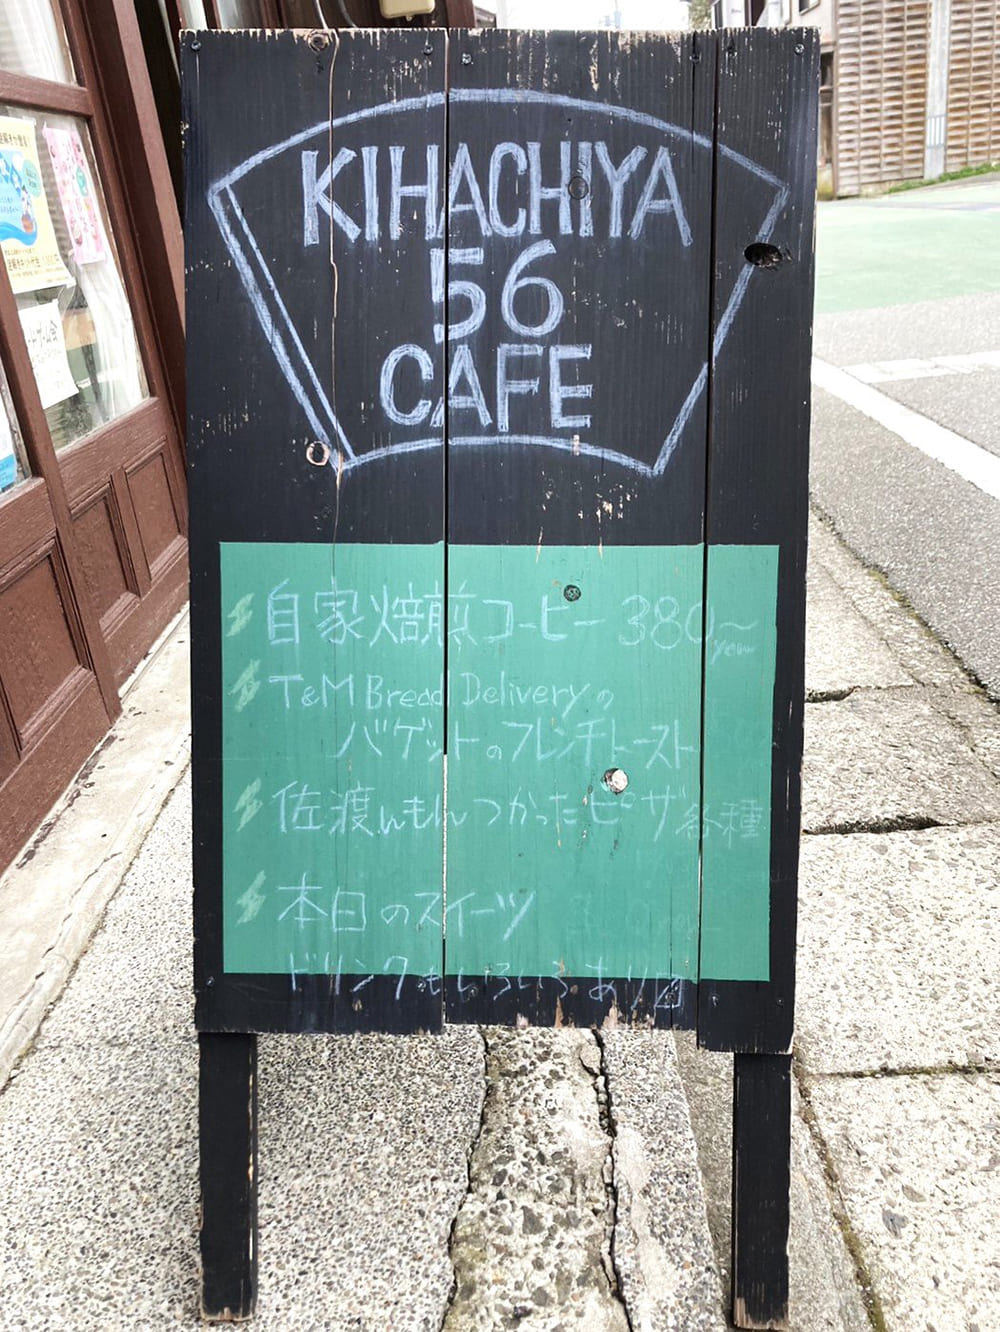 KIHACHIYA
56
CAFE
自家焙煎コーヒー 380~
yen
T&M Bread Deliveryの
バゲットのフレンチトースト
佐渡んもんつかったピザ各種
本日のスイーツ
ドリンクもいろいろあり〼